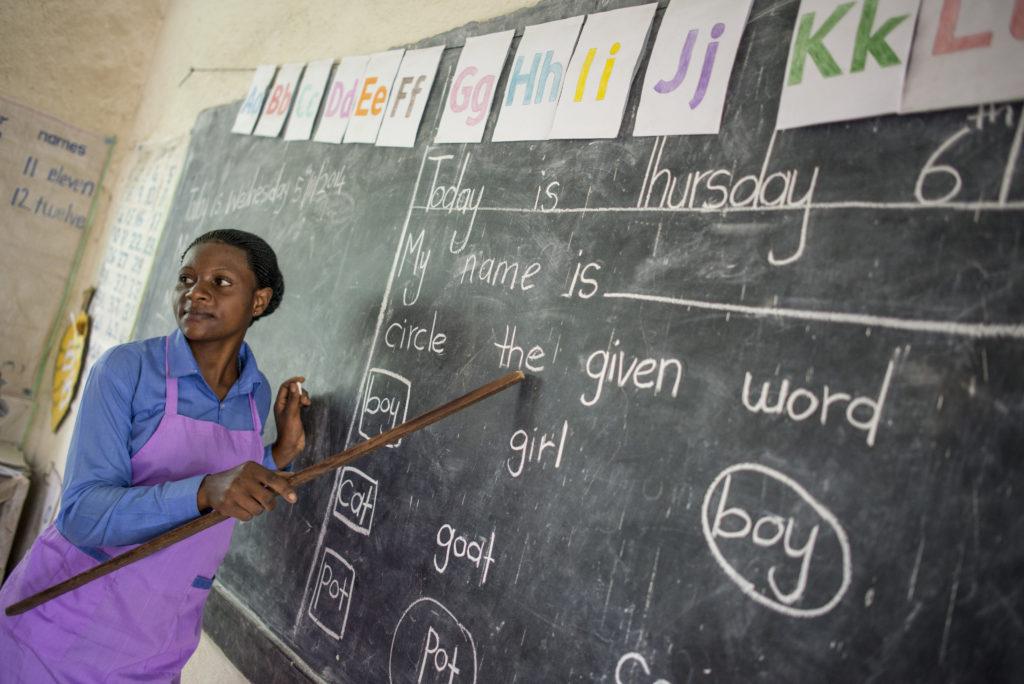 Aa Bb Cc Dd Ee Ff Gg Hh Ii Jj Kk
names
11 eleven
12 twelve
Today is Wednesday 5th
Today is Thursday 6th
My name is
circle the given word
boy girl boy
cat goat
pot pot